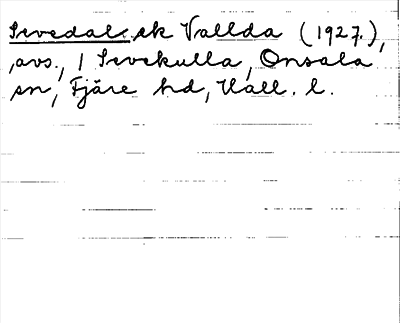 Sevedal. sk Vallda (1927.),
avs., 1 Sevekulla, Onsala
sn, Fjäre hd, Hall. l.